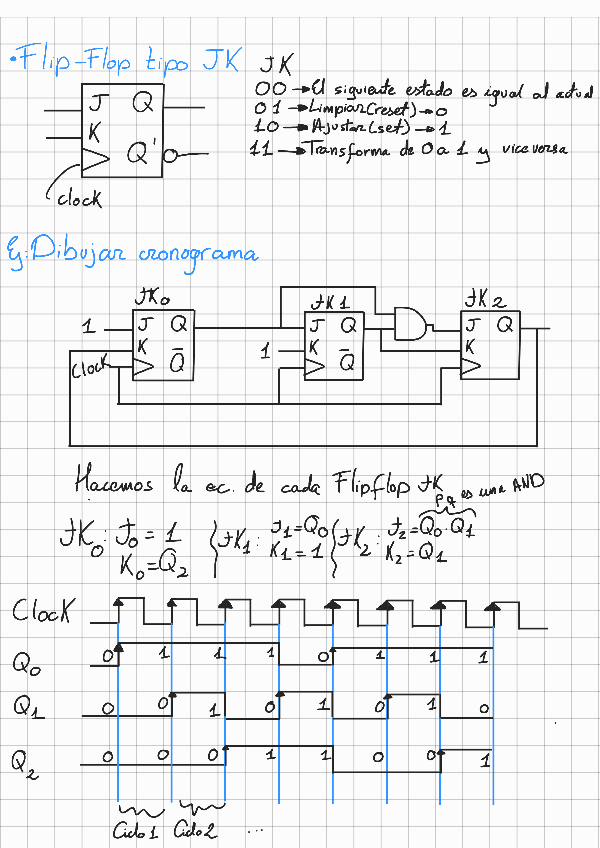 • Flip-Flop tipo JK
JK
00 → El siguiente estado es igual al actual
01 → Limpiar(reset) → 0
10 → Ajustar(set) → 1
11 → Transforma de 0 a 1 y viceversa
J Q
K
Q'
clock
Ej: Dibujar cronograma
JK0 JK1 JK2
1 J Q J Q J Q
K Q̅ 1 K Q̅ K
Clock
Hacemos la ec. de cada Flipflop JK
Pq es una AND
JK0: J0 = 1 JK1: J1 = Q0 JK2: J2 = Q0 · Q1
K0 = Q2 K1 = 1 K2 = Q1
Clock
Q0 0 1 1 1 0 1 1 1
Q1 0 0 1 0 1 0 1 0
Q2 0 0 0 1 1 0 0 1
Ciclo 1 Ciclo 2 ...